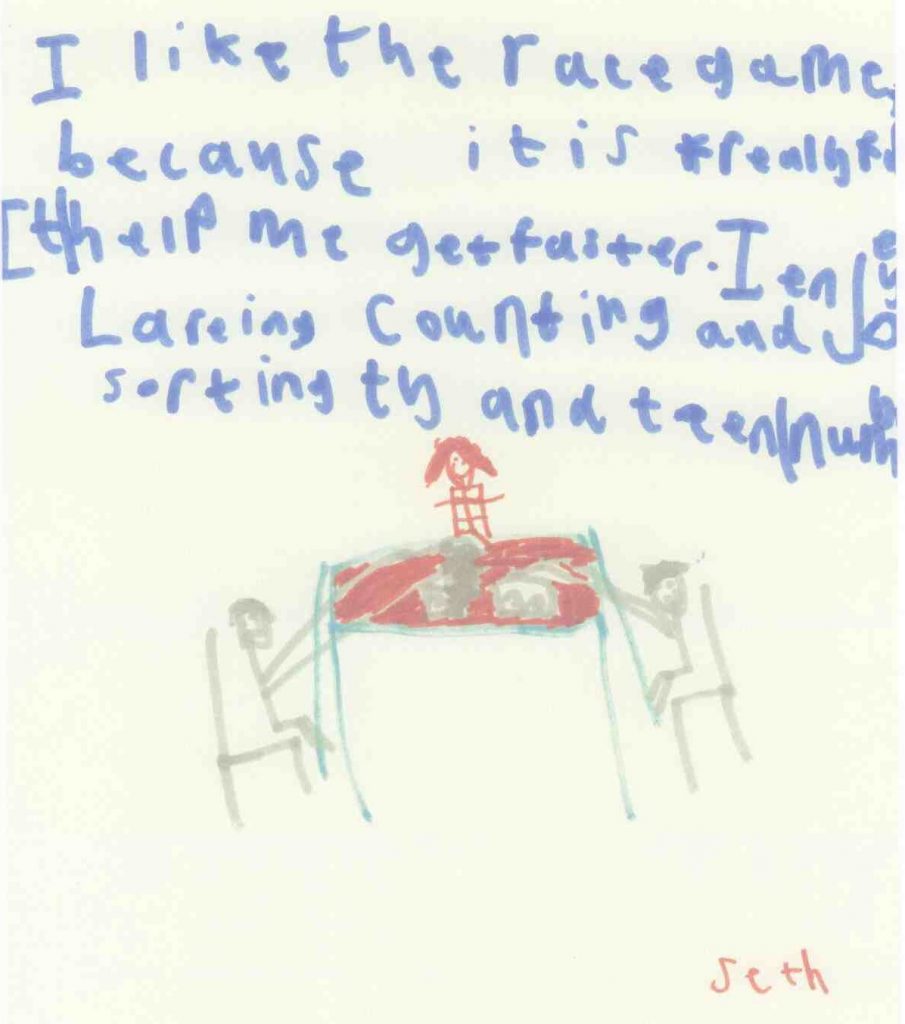 I like the race game
because it is *really
help me get faster. I enjoy
Lareing counting and
sorting ty and teen
Seth